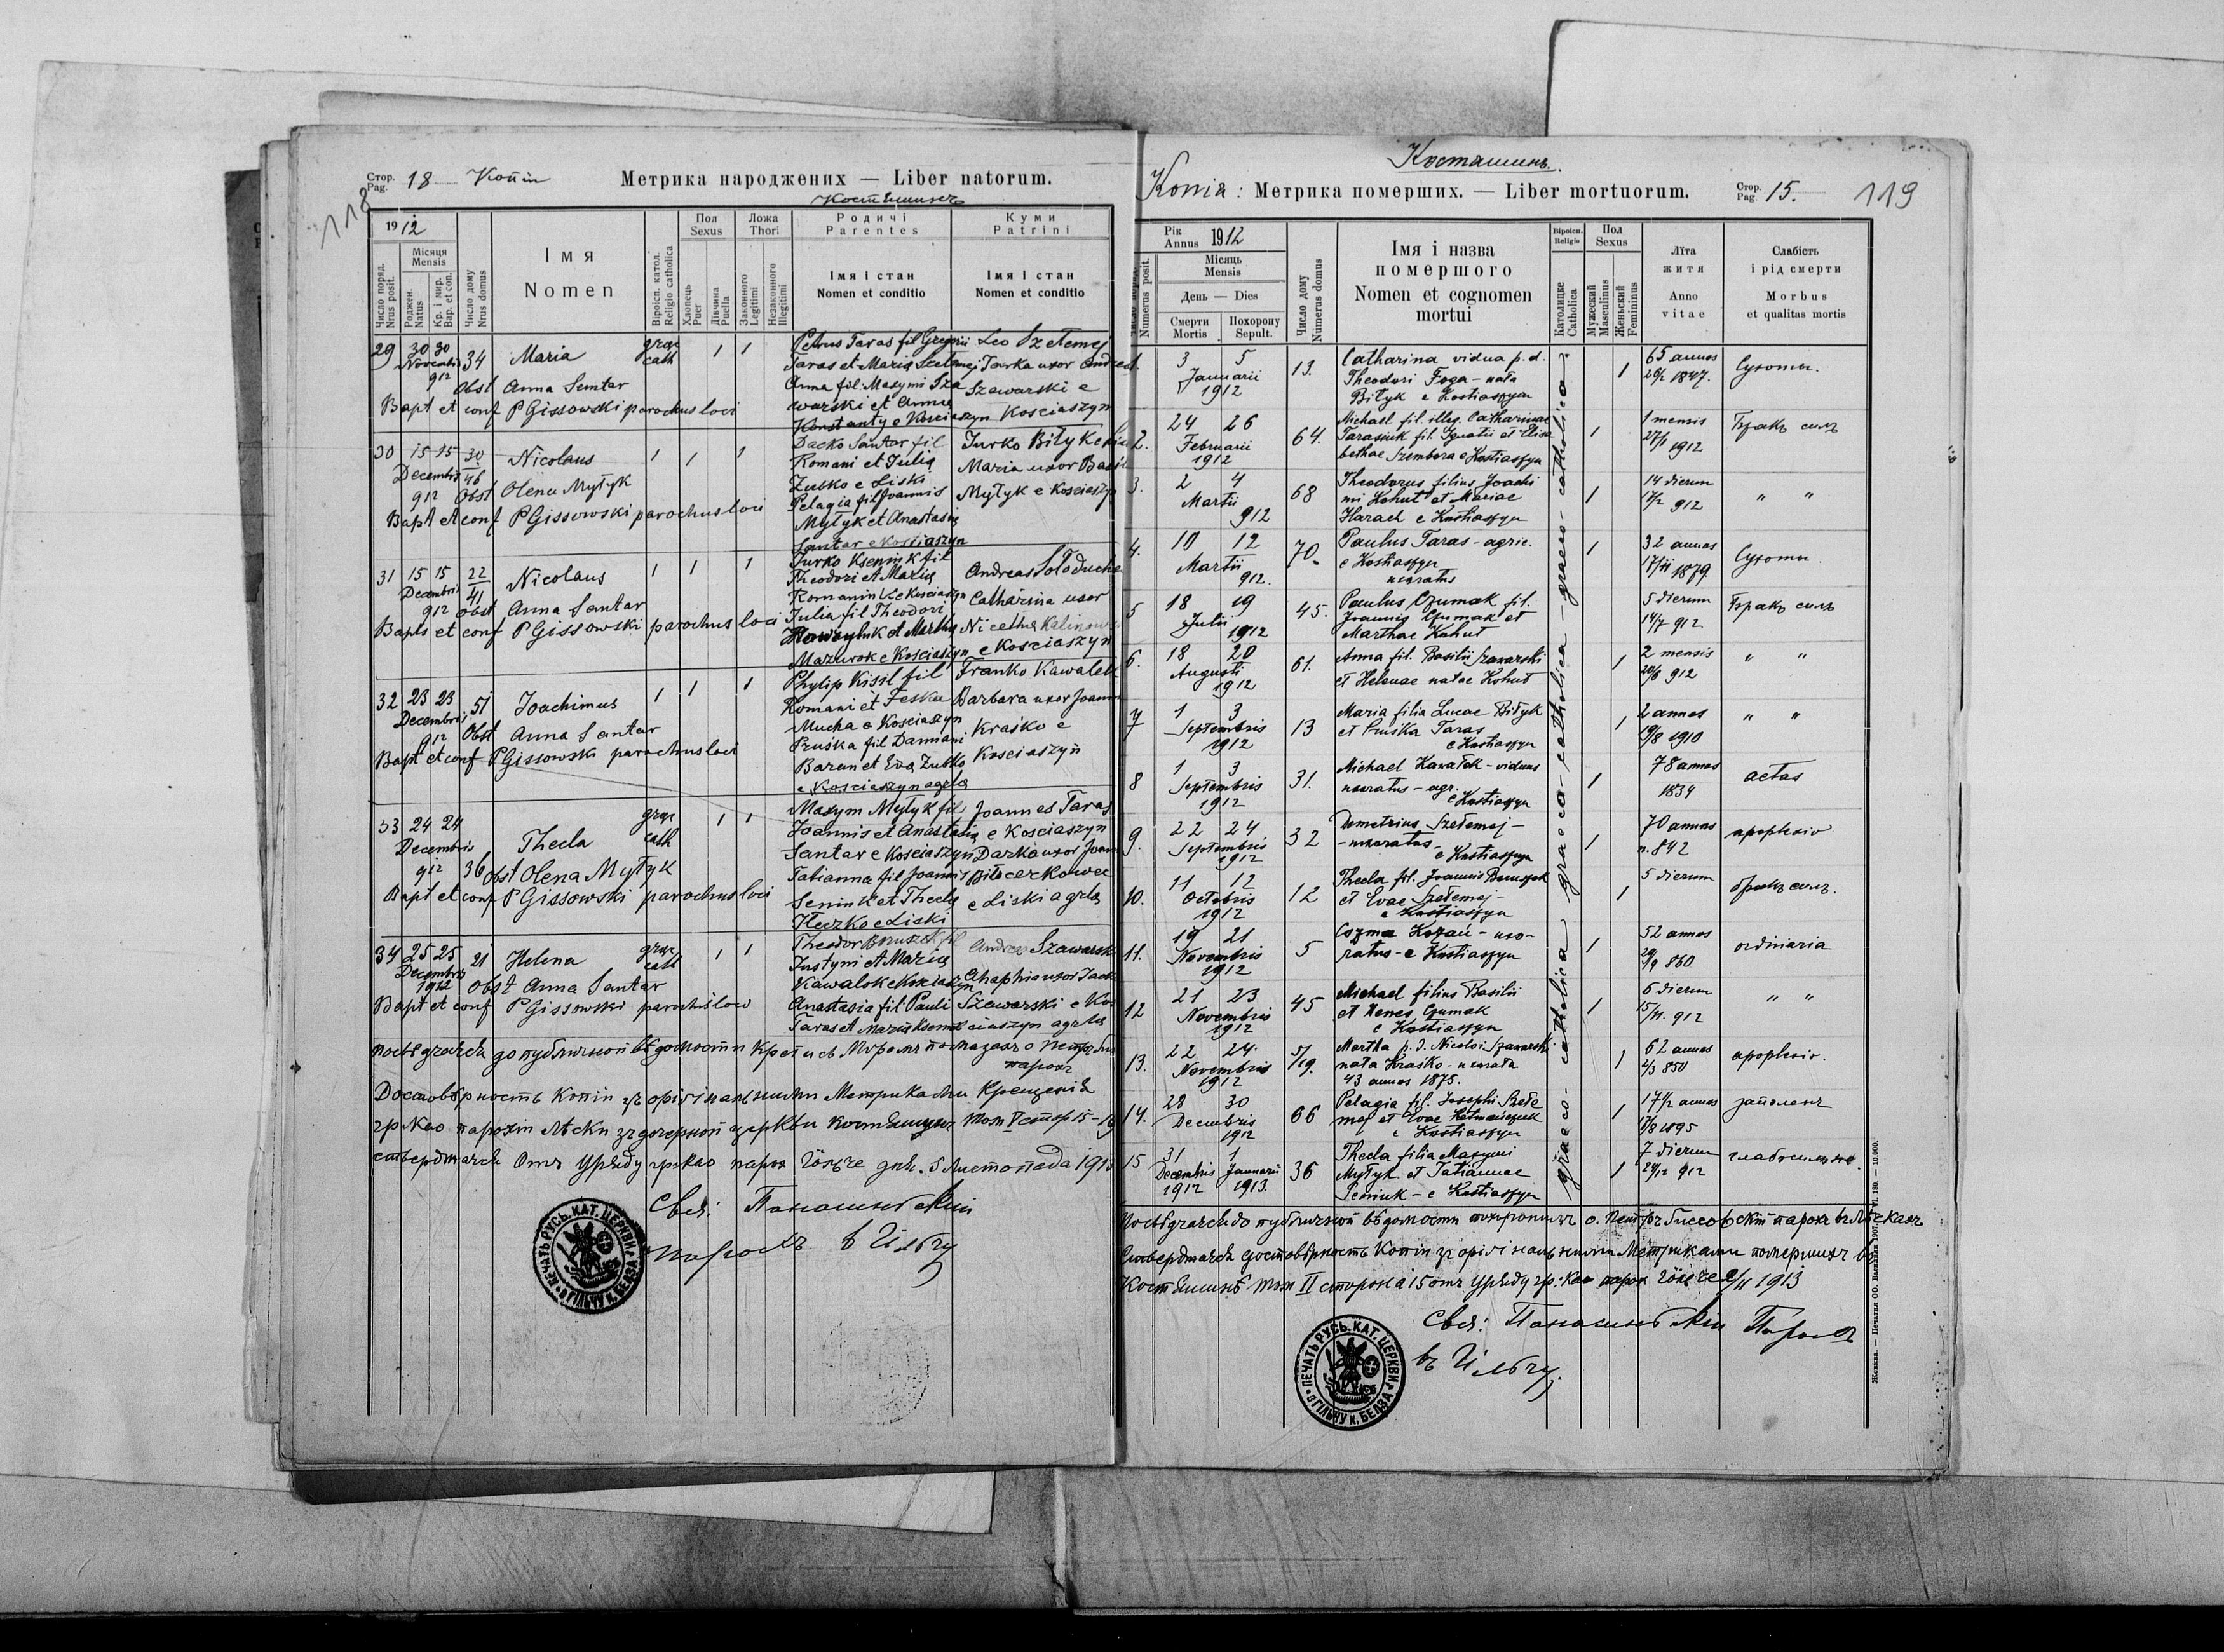 118
Стор. Pag. 18 Копія Метрика народжених — Liber natorum.
1912
Число поряд. Nrus posit.
Місяця Mensis
Роджен. Natus
Кр. і мир. Bap. et con.
Число дому Nrus domus
Імя Nomen
Віросп. катол. Religio catholica
Пол Sexus
Хлопець Puer
Дівчина Puella
Ложа Thori
Законного Legitimi
Незаконного Illegitimi
Родичі Parentes
Імя і стан Nomen et conditio
Куми Patrini
Імя і стан Nomen et conditio
29 30 30 Novembris 912 34 Maria graec cath 1 1
Petrus Taras fil
Taras et Maria
Anna fil. Maxymi Sza
warski et Anna
Konstanty e Kosciaszyn
Leo Szełemej
Jawka uxor Andreae
Szawarski e
Kosciaszyn
Obst Anna Santar
Bapt et conf P Gissowski parochus loci
30 15 15 Decembris 912 30/46 Nicolaus 1 1 1
Dacko Santar fil
Romani et Julia
Zubko e Liski
Pelagia fil Joannis
Mytyk et Anastasia
Santar e Kosciaszyn
Jurko Bityk
Maria uxor
Mytyk e Kosciaszyn
Obst Olena Mytyk
Bapt et conf P Gissowski parochus loci
31 15 15 Decembris 912 22/41 Nicolaus 1 1 1
Jurko Kseniuk fil
Theodori et Maria
Romaniuk e Kosciaszyn
Julia fil Theodori
et Martha
Mazurok e Kosciaszyn
Andreas Sołoducha
Catharina uxor
Nicetha
e Kosciaszyn
Obst Anna Santar
Bapts et conf P Gissowski parochus loci
32 23 23 Decembris 912 51 Joachimus 1 1 1
Phylip Kisil fil
Romani et Feska
Mucha e Kosciaszyn
Pruśka fil Damiani
Baran et Eva Zubko
e Kosciaszyn agrlą
Franko Kawalek
Barbara uxor Joannis
Krasko e
Kosciaszyn
Obst Anna Santar
Bapt et conf P Gissowski parochus loci
33 24 24 Decembris 912 36 Thecla graec cath 1 1
Maxym Mytyk fil
Joannis et Anastasia
Santar e Kosciaszyn
Tatianna fil Joannis
Seniuk et Thecla
Kleczko e Liski
Joannes Taras
e Kosciaszyn
Darka uxor Joan
Biłocerkowec
e Liski agrlą
Obst Olena Mytyk
Bapt et conf P Gissowski parochus loci
34 25 25 Decembris 1912 21 Helena graec cath 1 1
Theodor Bruszek fil
Justyni et Maria
Kawalok e Kosciaszyn
Anastasia fil Pauli
Taras et Maria Kseniuk
Andreas Szawarski
Ahaphia uxor Jacki
Szawarski e Kos
ciaszyn agrlą
Obst Anna Santar
Bapt et conf P Gissowski parochus loci
парох
Достовѣрность Копіи зъ оріґінальными Метриками Крещенія
стверджаєся Отъ Уряду гр кат парох дня 5 Листопада 1913
Свящ:
парохъ в
ПЕЧАТЬ РУСЬ. КАТ. ЦЕРКВИ В ГІЛЬЧУ К. БЕЛЗА
Косташинъ.
119
Копія: Метрика померших. — Liber mortuorum. Стор. Pag. 15.
Рік Annus 1912
Numerus posit.
Місяць Mensis
День — Dies
Смерти Mortis
Похорону Sepult.
Число дому Numerus domus
Імя і назва помершого
Nomen et cognomen mortui
Віроісп. Religio
Католицке Catholica
Пол Sexus
Мужеский Masculinus
Женьский Feminius
Літа житя
Anno vitae
Слабість і рід смерти
Morbus et qualitas mortis
graeco-catholica - graeco-catholica - graeco-catholica
1. 3 5 Januarii 1912 13.
Catharina vidua p. d.
Theodori Foga - nata
Bityk e Kostiaszyn
1 65 annos 1847. Сухоты.
2. 24 26 Februarii 1912 64.
Michael fil. illeg. Catharinae
Tarasiuk fil. Ignatii et Elisa
bethae Szembora e Kostiaszyn
1 1 mensis 27/1 1912 Бракъ силъ
3. 2 4 Martii 912 68
Theodorus filius Joachi
mi Kohut et Mariae
Harach e Kostiaszyn
1 14 dierum 17/2 912 " "
4. 10 12 Martii 912. 70.
Paulus Taras - agric.
e Kostiaszyn
uxoratus
1 32 annos 1879 Сухоты
5 18 19 Julii 1912 45.
Paulus Czumak fil.
Joannis Czumak et
Marthae Kohut
5 dierum 14/7 912 Бракъ силъ
6. 18 20 Augusti 1912 61.
Anna fil. Basilii Szawarski
et Helenae natae Kohut
1 2 mensis 20/6 912 " "
7 1 3 Septembris 1912 13
Maria filia Lucae Bityk
et Pruśka Taras
e Kostiaszyn
1 2 annos 19/8 1910 " "
8 1 3 Septembris 1912 31.
Michael Kawałek - viduus
uxoratus - agr.
e Kostiaszyn
1 78 annos 1834 aetas
9. 22 24 Septembris 1912 32
Demetrius Szełemej -
- uxoratus -
e Kostiaszyn
1 70 annos n. 842 apoplexio
10. 11 12 Octobris 1912 12
Thecla fil. Joannis
et Evae Szełemej -
e Kostiaszyn
1 5 dierum бракъ силъ.
11. 19 21 Novembris 1912 5
Cozma Kozań - uxo-
ratus - e Kostiaszyn
1 52 annos 29/9 860 ordinaria
12 21 23 Novembris 1912 45
Michael filius Basilii
et Czumak
e Kostiaszyn
1 6 dierum 15/11. 912 " "
13. 22 24 Novembris 1912 5/19.
Martha p. d. Nicolai Szawarski
nata Krasko - uxorata
43 annos 1875.
1 62 annos 2/3 850 apoplexio.
14. 28 30 Decembris 1912 66
Pelagia fil. Josephi Szełe
mej et Evae
e Kostiaszyn
1 17 1/2 annos 1895 запаленя
15 31 1 Decembris Januarii 1912 1913. 36
Thecla filia Maxymi
Mytyk et Tatiannae
Seniuk - e Kostiaszyn
1 7 dierum 24/12 912
о. Петръ Гиссовскій парохъ въ Лѣскахъ
Стверджаєся достовѣрность Копіи зъ оріґінальными Метриками помершихъ въ
том II сторона 15 отъ Уряду гр: кат парох 1913
Свящ: Парохъ
въ
ПЕЧАТЬ РУСЬ. КАТ. ЦЕРКВИ В ГІЛЬЧУ К. БЕЛЗА
Жовква. — Печатня ОО. Василіян 1907. 180. — 10.000.